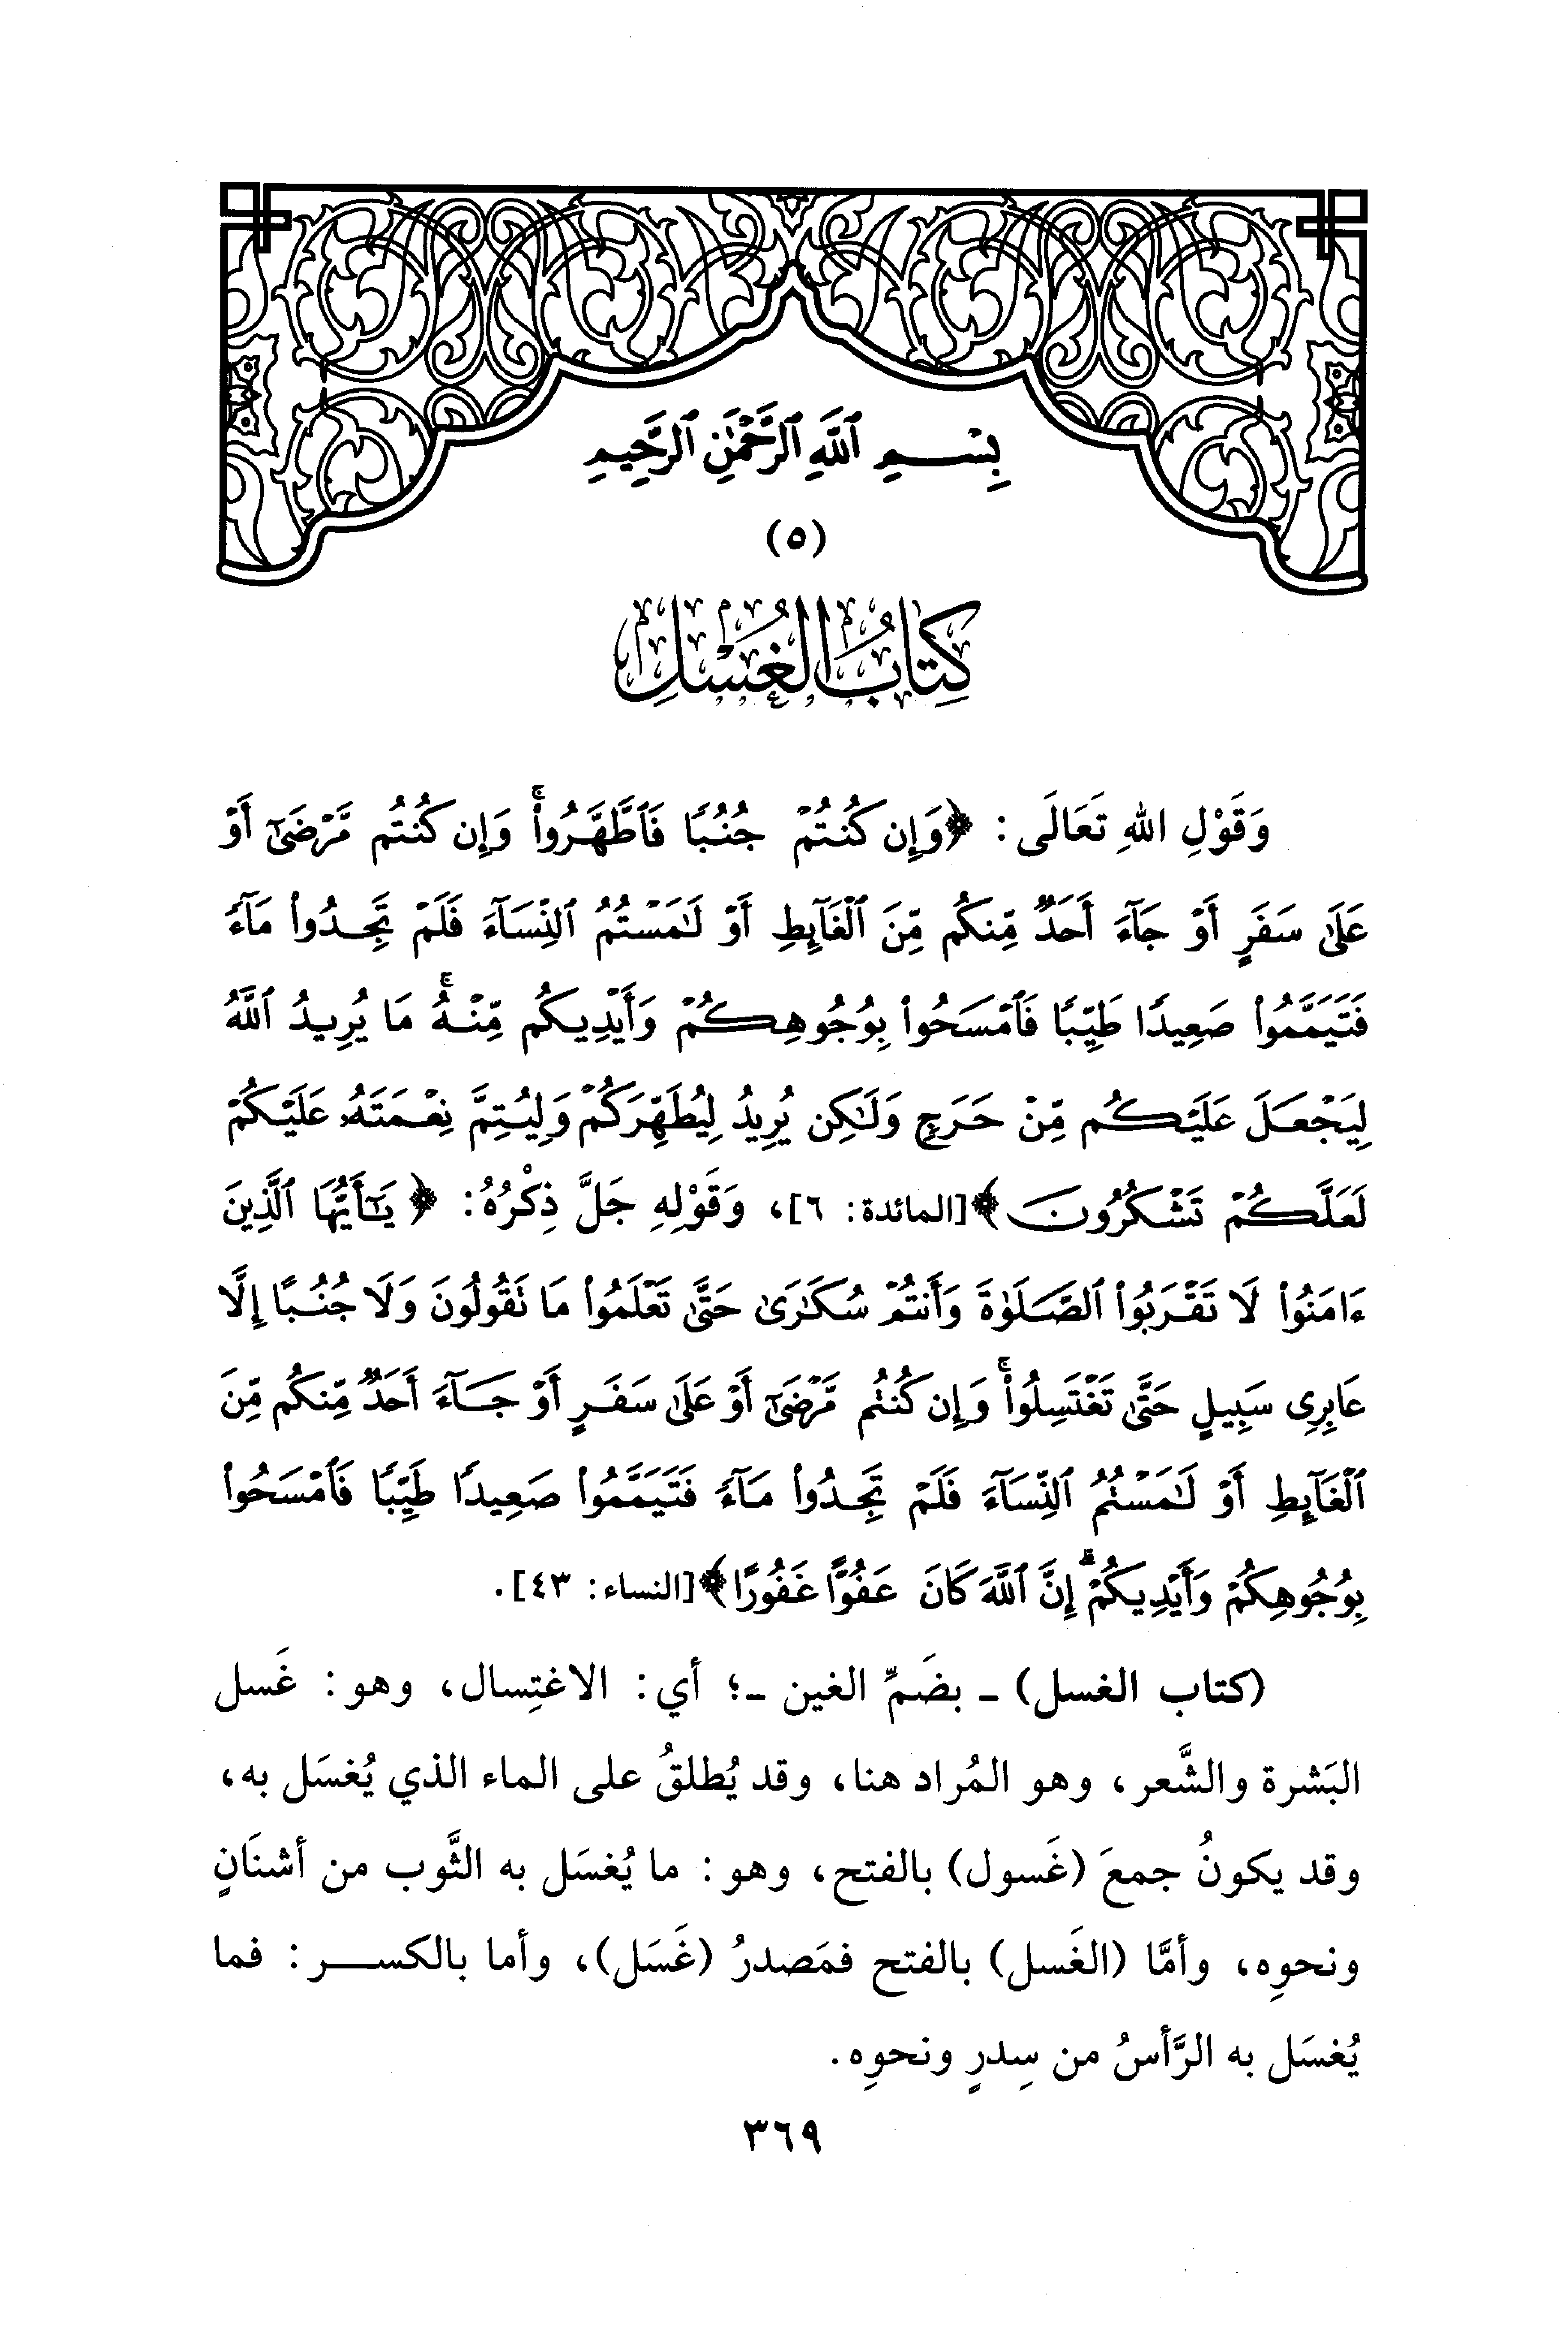 بِسْمِ ٱللَّهِ ٱلرَّحْمَٰنِ ٱلرَّحِيمِ
(٥)
كِتَابُ الْغُسْلِ
وَقَوْلِ اللهِ تَعَالَى: ﴿وَإِن كُنتُمْ جُنُبًا فَٱطَّهَّرُوا۟ ۚ وَإِن كُنتُم مَّرْضَىٰٓ أَوْ
عَلَىٰ سَفَرٍ أَوْ جَآءَ أَحَدٌ مِّنكُم مِّنَ ٱلْغَآئِطِ أَوْ لَٰمَسْتُمُ ٱلنِّسَآءَ فَلَمْ تَجِدُوا۟ مَآءً
فَتَيَمَّمُوا۟ صَعِيدًا طَيِّبًا فَٱمْسَحُوا۟ بِوُجُوهِكُمْ وَأَيْدِيكُم مِّنْهُ ۚ مَا يُرِيدُ ٱللَّهُ
لِيَجْعَلَ عَلَيْكُم مِّنْ حَرَجٍ وَلَٰكِن يُرِيدُ لِيُطَهِّرَكُمْ وَلِيُتِمَّ نِعْمَتَهُۥ عَلَيْكُمْ
لَعَلَّكُمْ تَشْكُرُونَ﴾ [المائدة: ٦]، وَقَوْلِهِ جَلَّ ذِكْرُهُ: ﴿يَٰٓأَيُّهَا ٱلَّذِينَ
ءَامَنُوا۟ لَا تَقْرَبُوا۟ ٱلصَّلَوٰةَ وَأَنتُمْ سُكَٰرَىٰ حَتَّىٰ تَعْلَمُوا۟ مَا تَقُولُونَ وَلَا جُنُبًا إِلَّا
عَابِرِى سَبِيلٍ حَتَّىٰ تَغْتَسِلُوا۟ ۚ وَإِن كُنتُم مَّرْضَىٰٓ أَوْ عَلَىٰ سَفَرٍ أَوْ جَآءَ أَحَدٌ مِّنكُم مِّنَ
ٱلْغَآئِطِ أَوْ لَٰمَسْتُمُ ٱلنِّسَآءَ فَلَمْ تَجِدُوا۟ مَآءً فَتَيَمَّمُوا۟ صَعِيدًا طَيِّبًا فَٱمْسَحُوا۟
بِوُجُوهِكُمْ وَأَيْدِيكُمْ ۗ إِنَّ ٱللَّهَ كَانَ عَفُوًّا غَفُورًا﴾ [النساء: ٤٣].
(كتاب الغسل) ـ بضَمِّ الغين ـ؛ أي: الاغتِسال، وهو: غَسل
البَشرة والشَّعر، وهو المُراد هنا، وقد يُطلقُ على الماء الذي يُغسَل به،
وقد يكونُ جمعَ (غَسول) بالفتح، وهو: ما يُغسَل به الثَّوب من أشنَانٍ
ونحوِه، وأمَّا (الغَسل) بالفتح فمَصدرُ (غَسَل)، وأما بالكسر: فما
يُغسَل به الرَّأسُ من سِدرٍ ونحوِه.
٣٦٩